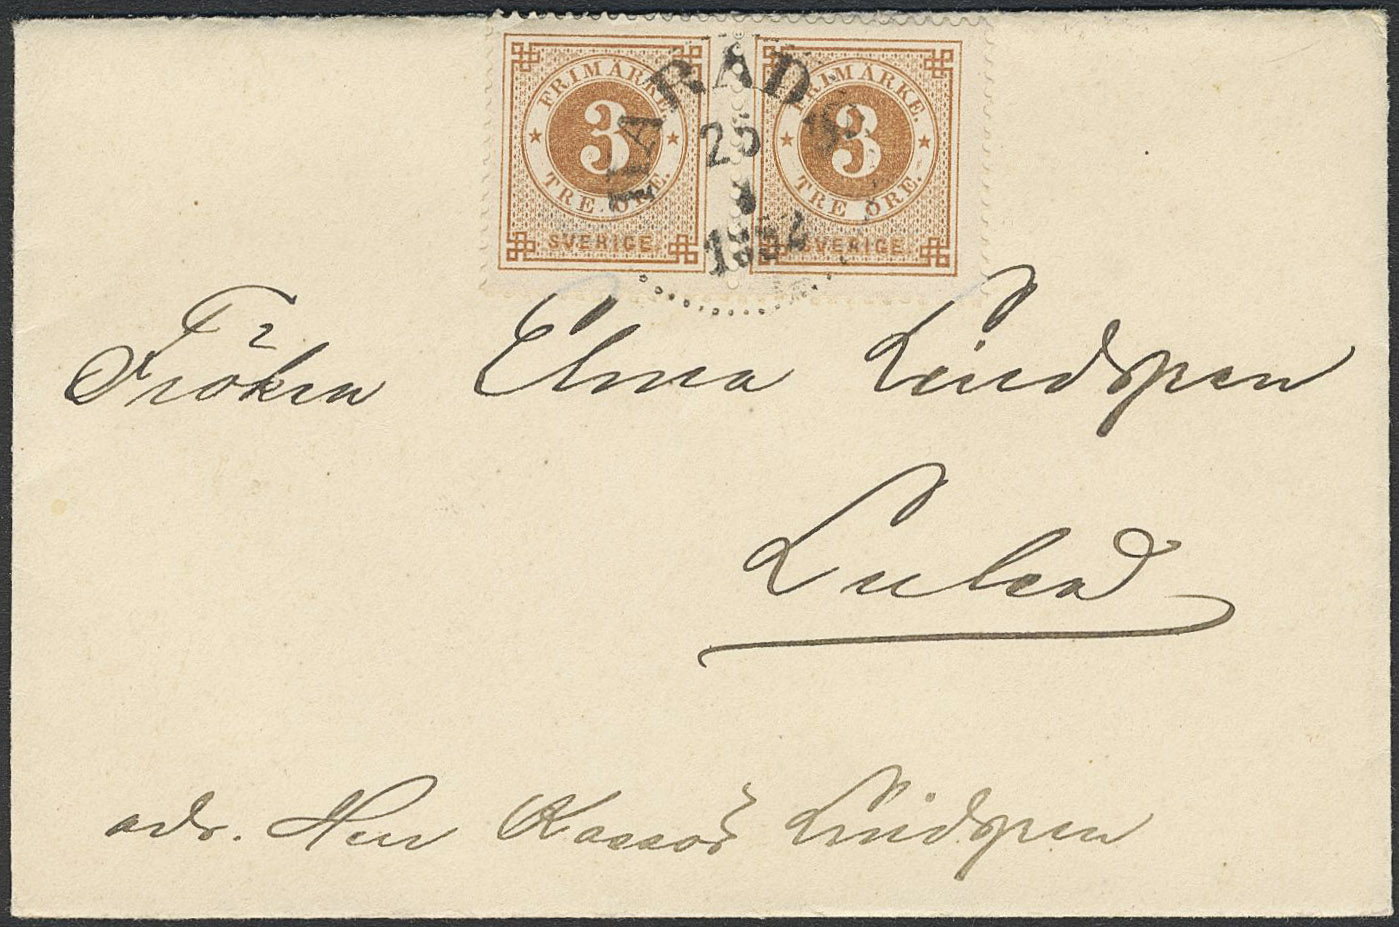 FRIMÄRKE.
3
TRE ÖRE.
SVERIGE.
FRIMÄRKE.
3
TRE ÖRE.
SVERIGE.
HARADS
25
Fröken Elma Lindgren
Luleå
adr. Herr Kassör Lindgren